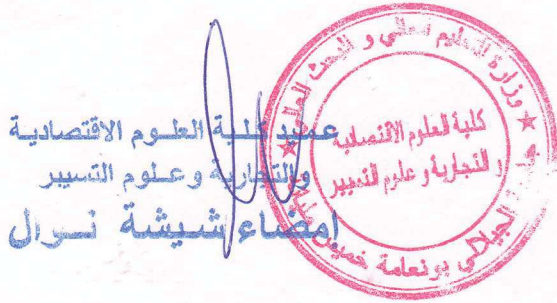 عميد كلية العلوم الاقتصادية
والتجارية وعلوم التسيير
امضاء شيشة نوال
وزارة التعليم العالي و البحث العلمي
كلية العلوم الاقتصادية
و التجارية و علوم التسيير
الجيلالي بونعامة خميس